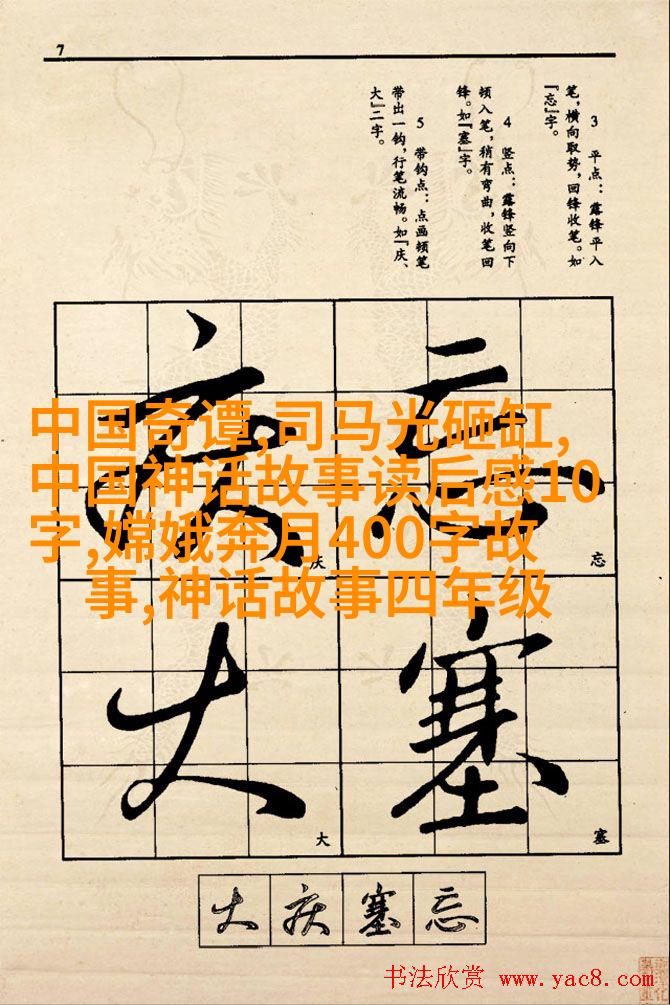 7
3 平点：露锋平入
笔，横向取势，回锋收笔。如
『忘』字。
4 竖点：露锋竖向下
顿入笔，稍有弯曲，收笔回
锋。如『塞』字。
5 带钩点：点画顿笔
带出一钩，行笔流畅。如『庆、
大』二字。
中国奇谭,司马光砸缸,
中国神话故事读后感10
字,嫦娥奔月400字故
事,神话故事四年级
庆 忘
庆 忘
大 塞
大 塞
大 庆 塞 忘
书法欣赏 www.yac8.com